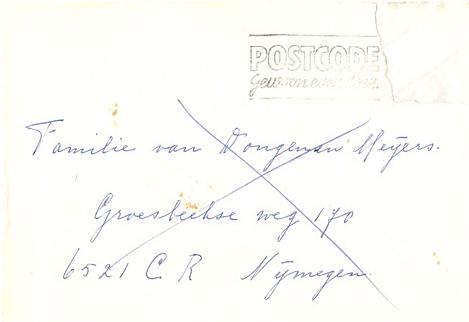 POSTCODE
Gewoon even doen.
Familie van Dongen en Meijers.
Groesbeekse weg 170
6521 CR Nijmegen.